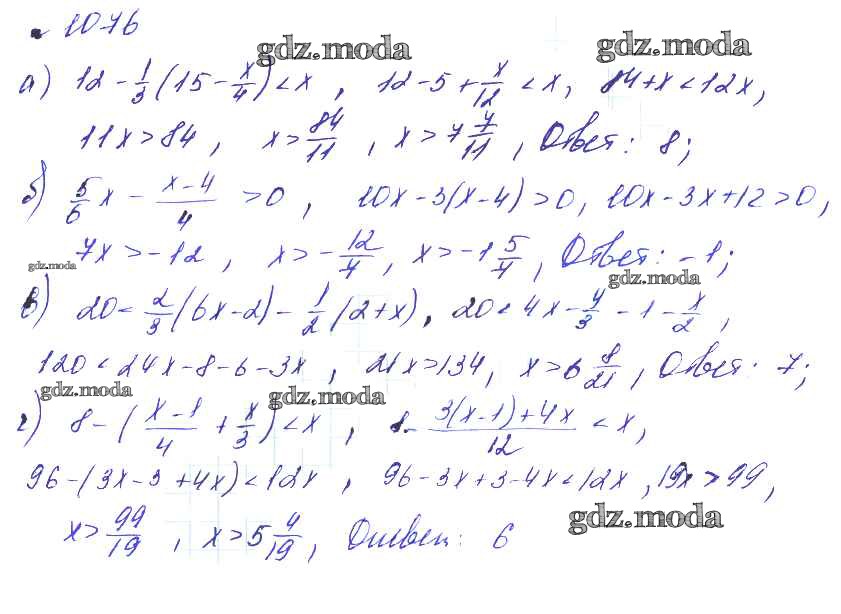 1076
gdz.moda gdz.moda
а) 12 - 1/3 (15 - x/4) < x, 12 - 5 + x/12 < x, 84 + x < 12x,
11x > 84, x > 84/11, x > 7 7/11, Ответ: 8;
б) 5/6 x - (x-4)/4 > 0, 10x - 3(x-4) > 0, 10x - 3x + 12 > 0,
7x > -12, x > - 12/7, x > -1 5/7, Ответ: -1;
gdz.moda gdz.moda
в) 20 < 2/3 (6x-2) - 1/2 (2+x), 20 < 4x - 4/3 - 1 - x/2,
120 < 24x - 8 - 6 - 3x, 21x > 134, x > 6 8/21, Ответ: 7;
gdz.moda gdz.moda
г) 8 - ((x-1)/4 + x/3) < x, 8 - (3(x-1)+4x)/12 < x,
96 - (3x - 3 + 4x) < 12x, 96 - 3x + 3 - 4x < 12x, 19x > 99,
x > 99/19, x > 5 4/19, Ответ: 6
gdz.moda